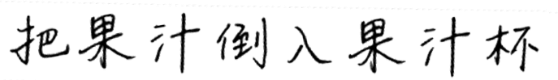 把果汁倒入果汁杯